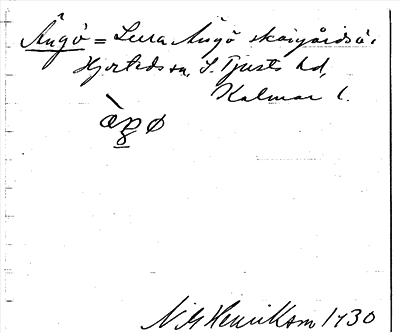 Ängö = Lilla Ängö skärgårdsö i
Hjorteds sn, S. Tjusts hd,
Kalmar l.
Henriksson 1930